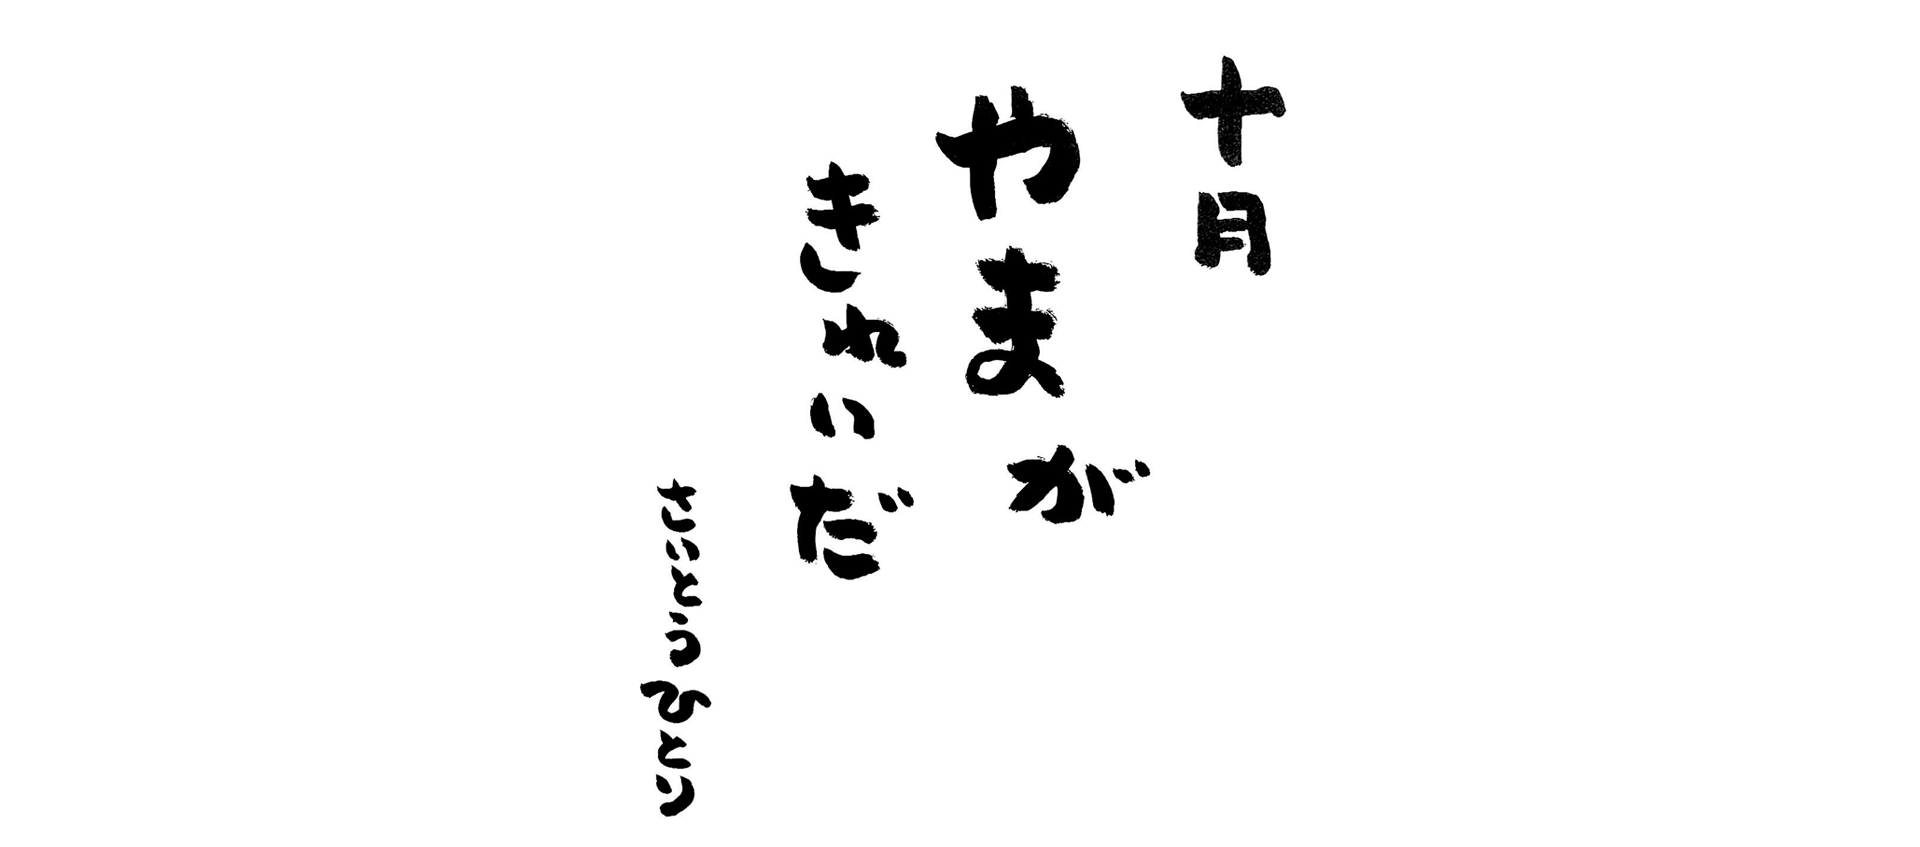 十月
やまが
きれいだ
さいとうひとり